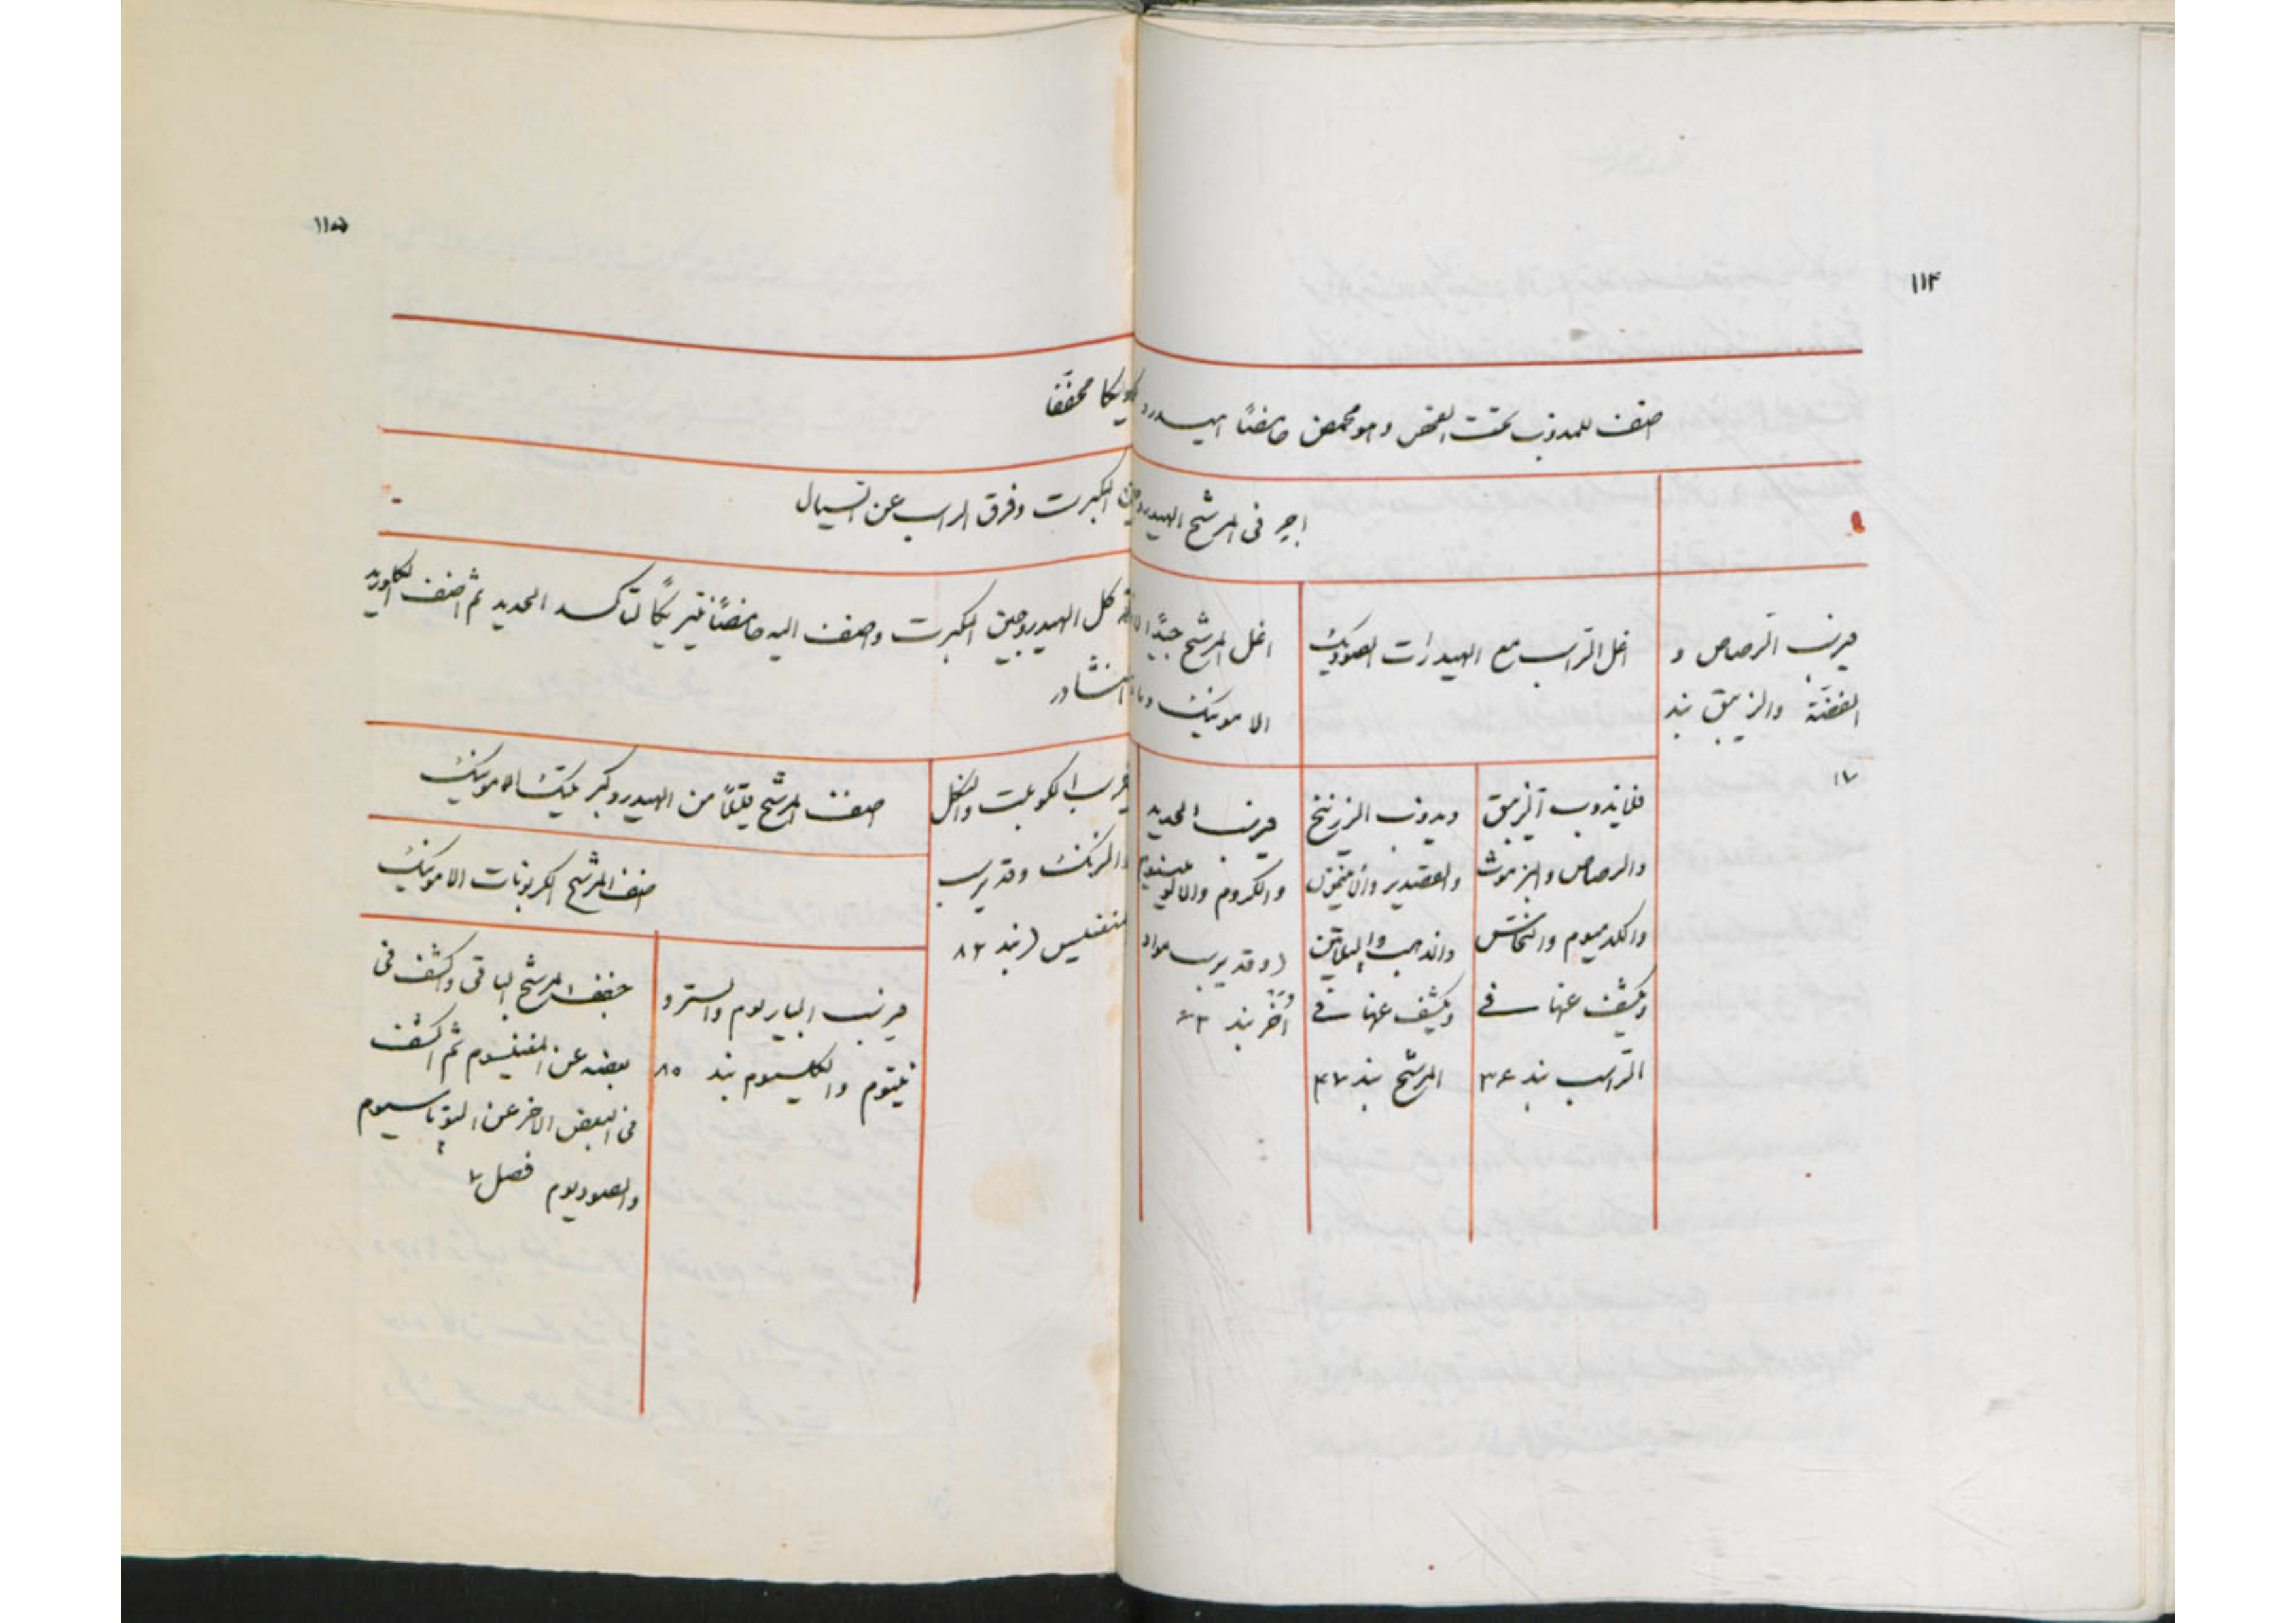 ١١٤
١١٥
اضف للمذوب تحت الفحص وهو محمض حامضًا هيدروكلوريكا مخففًا
اجر في المرشح الهيدروجين المكبرت وفرق الراسب عن السيال
يرسب الرصاص و
الفضة والزيبق بند
١٧
اغل الراسب مع الهيدرات الصوديك
فلا يذوب الزيبق
والرصاص والبزموث
والكدميوم والنحاس
ويكشف عنها في
الراسب بند ٣٦
ويذوب الزرنيخ
والقصدير والانتيمون
والذهب والبلاتين
ويكشف عنها في
المرشح بند ٤٧
اغل المرشح جيدًا كل الهيدروجين المكبرت واضف اليه حامضًا نيتريكًا لتأكسد الحديد ثم اضف الكلوريد
الامونيك وماء النشادر
يرسب الحديد
والكروم والالومينيوم
(وقد يرسب مواد
أخر بند
يرسب الكوبلت والنكل
والزنك وقد يرسب
منغنيس (بند ٨٢
اضف المرشح قليلًا من الهيدروكبريتيك الامونيك
اضف المرشح الكربونات الامونيك
يرسب الباريوم والسترو
نتيوم والكلسيوم بند ٨٥
جفف المرشح الباقي واكشف في
بعضه عن المغنيسيوم ثم اكشف
في البعض الاخر عن البوتاسيوم
والصوديوم فصل ٧